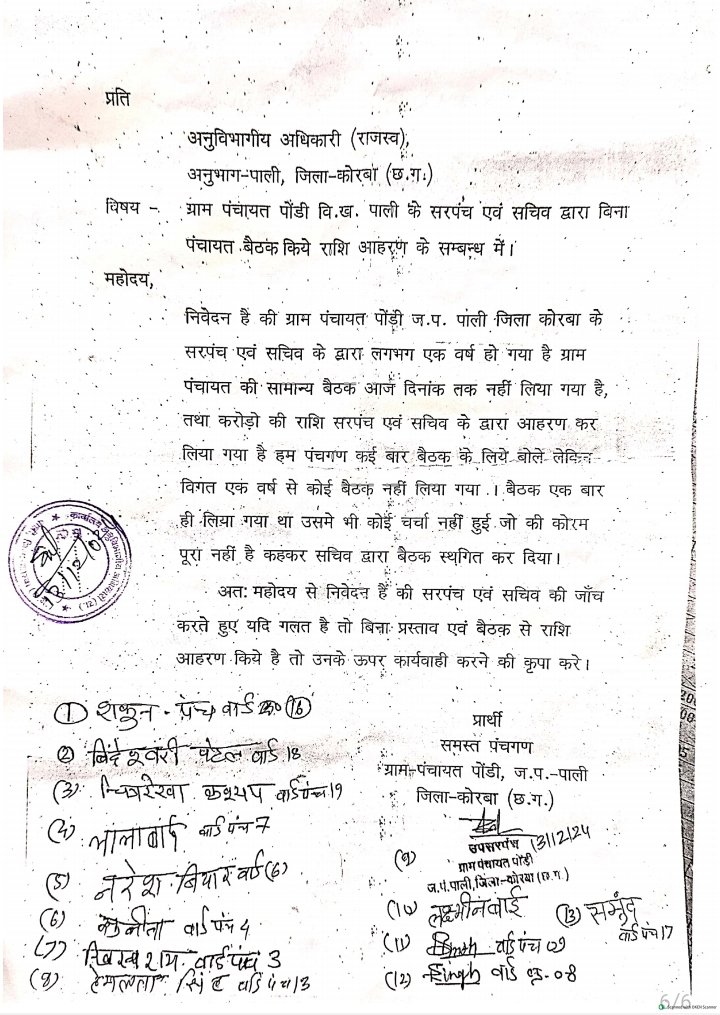 प्रति
अनुविभागीय अधिकारी (राजस्व),
अनुभाग-पाली, जिला-कोरबा (छ.ग.)
विषय - ग्राम पंचायत पोंडी वि.ख. पाली के सरपंच एवं सचिव द्वारा बिना
पंचायत बैठक किये राशि आहरण के सम्बन्ध में।
महोदय,
निवेदन है की ग्राम पंचायत पोंड़ी ज.प. पाली जिला कोरबा के
सरपंच एवं सचिव के द्वारा लगभग एक वर्ष हो गया है ग्राम
पंचायत की सामान्य बैठक आज दिनांक तक नहीं लिया गया है,
तथा करोड़ो की राशि सरपंच एवं सचिव के द्वारा आहरण कर
लिया गया है हम पंचगण कई बार बैठक के लिये बोले लेकिन
विगत एक वर्ष से कोई बैठक नहीं लिया गया .। बैठक एक बार
ही लिया गया था उसमे भी कोई चर्चा नहीं हुई जो की कोरम
पूरा नहीं है कहकर सचिव द्वारा बैठक स्थगित कर दिया।
अतः महोदय से निवेदन है की सरपंच एवं सचिव की जाँच
करते हुए यदि गलत है तो बिना प्रस्ताव एवं बैठक से राशि
आहरण किये है तो उनके ऊपर कार्यवाही करने की कृपा करे।
प्रार्थी
समस्त पंचगण
ग्राम-पंचायत पोंडी, ज.प.-पाली
जिला-कोरबा (छ.ग.)
(1) शकुन - पंच वार्ड (16)
(2) बिंदेश्वरी पटेल वार्ड 18
(3) चित्ररेखा कश्यप वार्ड पंच 19
(4) लालाबाई वार्ड पंच 7
(5) नरेश बियार वार्ड (6)
(6) सुनीता वार्ड पंच 4
(7) राम वार्ड पंच 3
(8) हेमलता सिंह वार्ड पंच 13
(9) उपसरपंच 13/12/24
ग्राम पंचायत पोंडी
ज.पं.पाली, जिला-कोरबा (छ.ग.)
(10) लक्ष्मीनबाई
(11) वार्ड पंच 09
(12) Singh वार्ड क्र.-08
(13) समुंद
वार्ड पंच 17
6/6
Scanned with OKEN Scanner